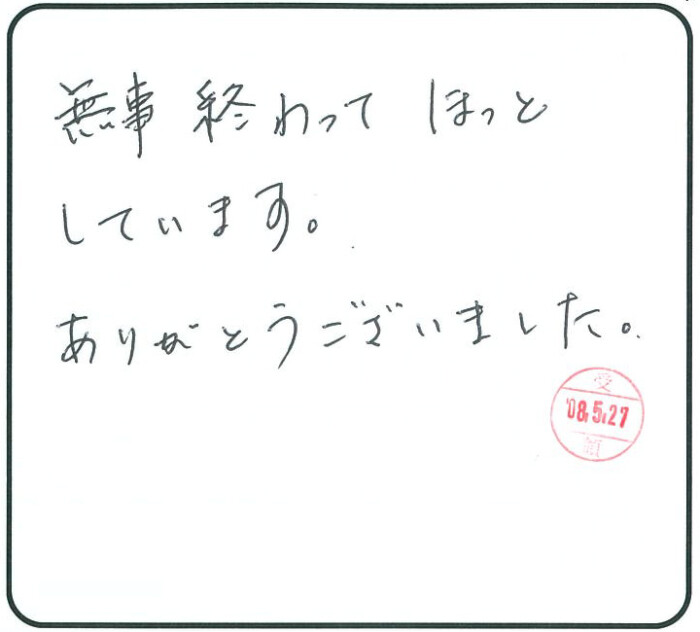 無事 終わって ほっと
しています。
ありがとうございました。
受
'08.5.27